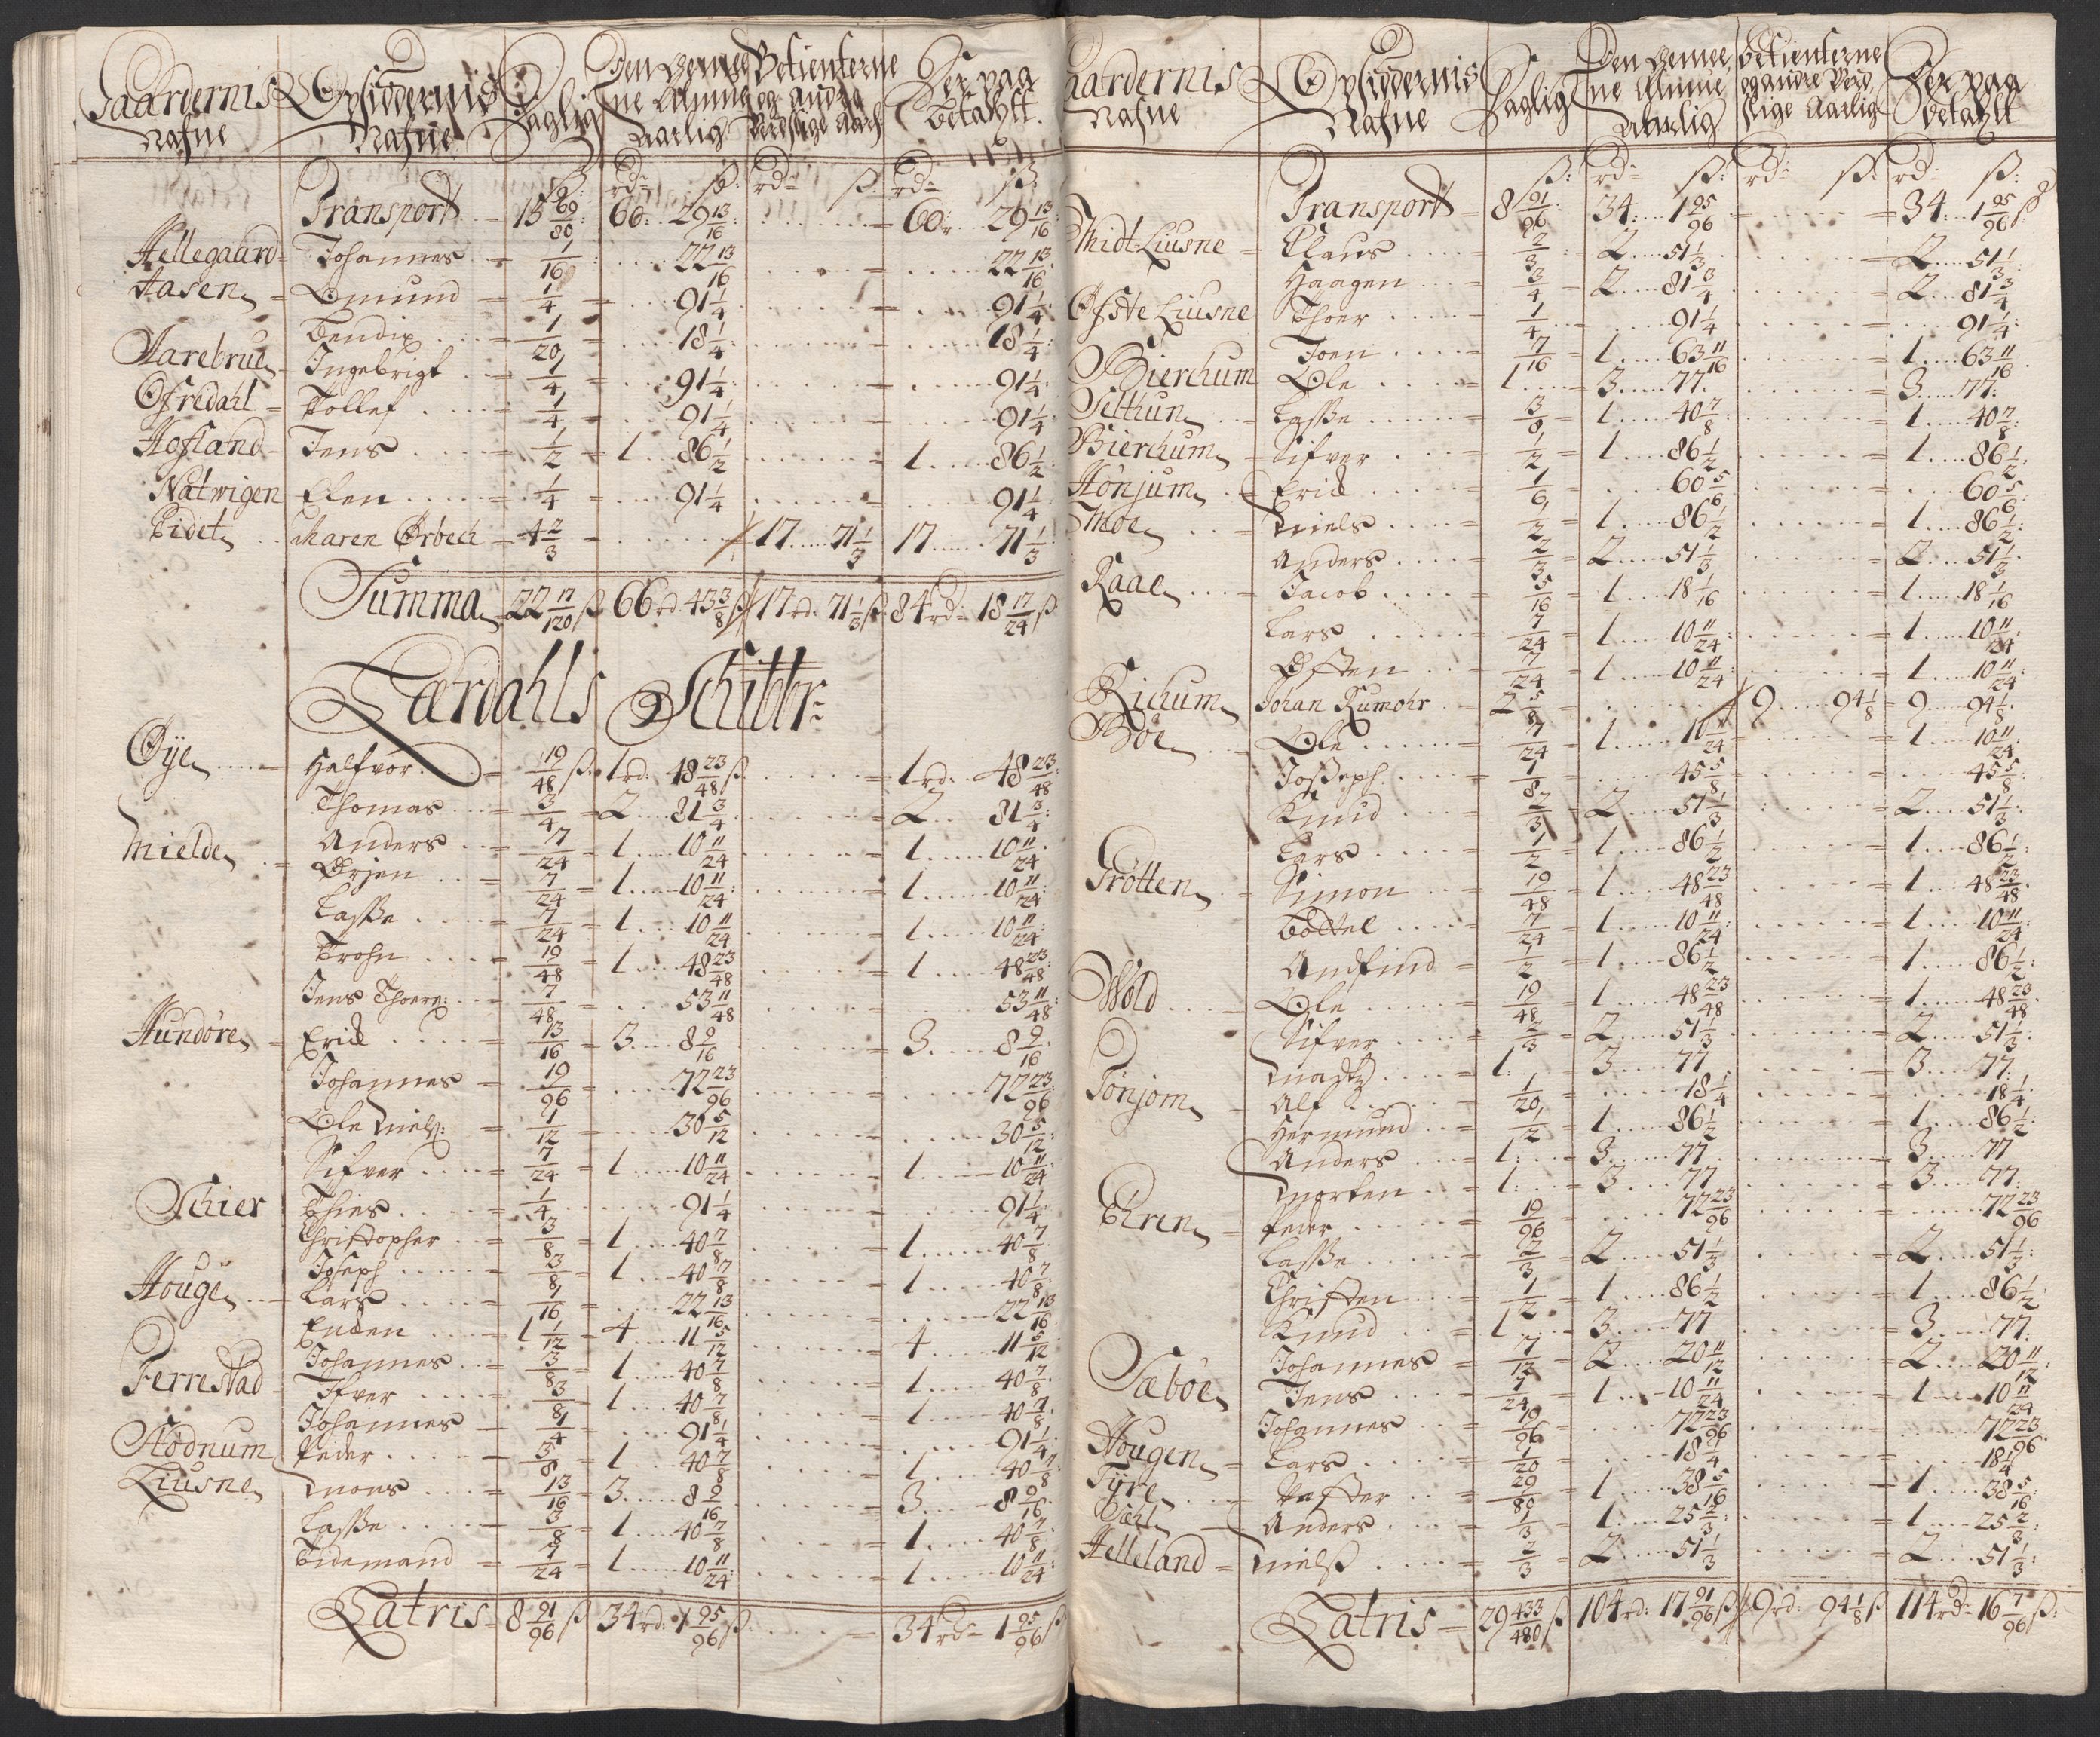 Gaardernis Nafne | Opsiddernis Nafne | Daglig | Den Gemeene Almue Aarlig | Betienterne og andre Verdslige Aarlig | Der paa betahlt.
ß: | rdr ß: | rdr ß: | rdr ß:
Transport 15 69/80: 60: 29 13/16: 60: 29 13/16
Hellegaard Johannes 1/16: 22 13/16 22 13/16
Aasen Omund 1/4 91 1/4 91 1/4
Bendix 1/20 18 1/4 18 1/4
Aarebrue Ingebrigt 1/4 91 1/4 91 1/4
Ofredahl Tollef 1/4 91 1/4 91 1/4
Hofland Jens 1/2 1 86 1/2 1 86 1/2
Natwigen Elen 1/4 91 1/4 91 1/4
Eidet Maren Ørbech 4 2/3 17 71 1/3 17 71 1/3
Summa 22 17/120 ß 66 rd 43 3/8 ß 17 rd. 71 1/3 ß 84 rdr 18 17/24 ß
Lærdahls Schibbr:
Øye Halfvor 19/48 ß: 1 rd. 48 23/48 ß 1 rd. 48 23/48
Thomas 3/4 2 81 3/4 2 81 3/4
Mielde Anders 7/24 1 10 11/24 1 10 11/24
Ørjen 7/24 1 10 11/24 1 10 11/24
Lasse 7/24 1 10 11/24 1 10 11/24
Trohn 19/48 1 48 23/48 1 48 23/48
Jens Thoers: 7/48 53 11/48 53 11/48
Hundøre Erick 13/16 3 8 9/16 3 8 9/16
Johannes 19/96 72 23/96 72 23/96
Ole Niels: 1/12 30 5/12 30 5/12
Sifver 7/24 1 10 11/24 1 10 11/24
Schier Thies 1/4 91 1/4 91 1/4
Christopher 3/8 1 40 7/8 1 40 7/8
Houge Joseph 3/8 1 40 7/8 1 40 7/8
Lars 1/16 22 13/16 22 13/16
Enden 1 1/12 4 11 5/12 4 11 5/12
Ferrestad Johannes 3/8 1 40 7/8 1 40 7/8
Ifver 3/8 1 40 7/8 1 40 7/8
Johannes 1/4 91 1/4 91 1/4
Stødnum Peder 3/8 1 40 7/8 1 40 7/8
Liusne Mons 13/16 3 8 9/16 3 8 9/16
Lasse 3/8 1 40 7/8 1 40 7/8
Tidemand 7/24 1 10 11/24 1 10 11/24
Latris 8 91/96 ß 34 rd: 1 95/96 ß 34 rdr 1 95/96 ß
Gaardernis Nafne | Opsiddernis Nafne | Daglig | Den Gemeene Almue Aarlig | Betienterne og andre Verdslige Aarlig | Der paa betahlt
ß: | rdr ß: | rdr ß: | rdr ß:
Transport 8 91/96 34: 1 95/96 34: 1 95/96 ß
Midt-Liusne Claus 2/3 2 51 1/3 2 51 1/3
Haagen 3/4 2 81 3/4 2 81 3/4
Øfste Liusne Thoer 1/4 91 1/4 91 1/4
Joen 7/16 1 63 11/16 1 63 11/16
Bierchum Ole 1 3 77. 3 77.
Selthun Lasse 3/8 1 40 7/8 1 40 7/8
Bierchum Sifver 1/2 1 86 1/2 1 86 1/2
Hønjum Erick 1/6 60 5/6 60 5/6
Moe Niels 1/2 1 86 1/2 1 86 1/2
Anders 2/3 2 51 1/3 2 51 1/3
Raae Jacob 5/16 1 18 1/16 1 18 1/16
Lars 7/24 1 10 11/24 1 10 11/24
Østen 7/24 1 10 11/24 1 10 11/24
Richum Johan Rumohr 2 5/8 9 94 1/8 9 94 1/8
Bøe Ole 7/24 1 10 11/24 1 10 11/24
Josseph 1/8 45 5/8 45 5/8
Knud 2/3 2 51 1/3 2 51 1/3
Lars 1/2 1 86 1/2 1 86 1/2
Grøtten Simon 19/48 1 48 23/48 1 48 23/48
Bottel 7/24 1 10 11/24 1 10 11/24
Andfind 1/2 1 86 1/2 1 86 1/2
Wold Ole 19/48 1 48 23/48 1 48 23/48
Sifver 2/3 2 51 1/3 2 51 1/3
Tønjom Madtz 1: 3 77 3 77.
Alf 1/20 18 1/4 18 1/4
Hermund 1/2 1 86 1/2 1 86 1/2
Anders 1: 3 77 3 77
Morten 1: 3 77 3 77.
Eren Peder 19/96 72 23/96 72 23/96
Lasse 2/3 2 51 1/3 2 51 1/3
Christen 1/2 1 86 1/2 1 86 1/2
Knud 1 3 77 3 77.
Sæbøe Johannes 7/12 2 20 11/12 2 20 11/12
Jens 7/24 1 10 11/24 1 10 11/24
Johannes 19/96 72 23/96 72 23/96
Hougen Lars 1/20 18 1/4 18 1/4
Tyre 29/80 1 38 5/16 1 38 5/16
Anders 1/3 1 25 2/3 1 25 2/3
Helleland Nielß 2/3 2 51 1/3 2 51 1/3
Latris 29 433/480 ß 104 rd: 17 91/96 ß 9 rd: 94 1/8 ß 114 rdr 16 7/96 ß: